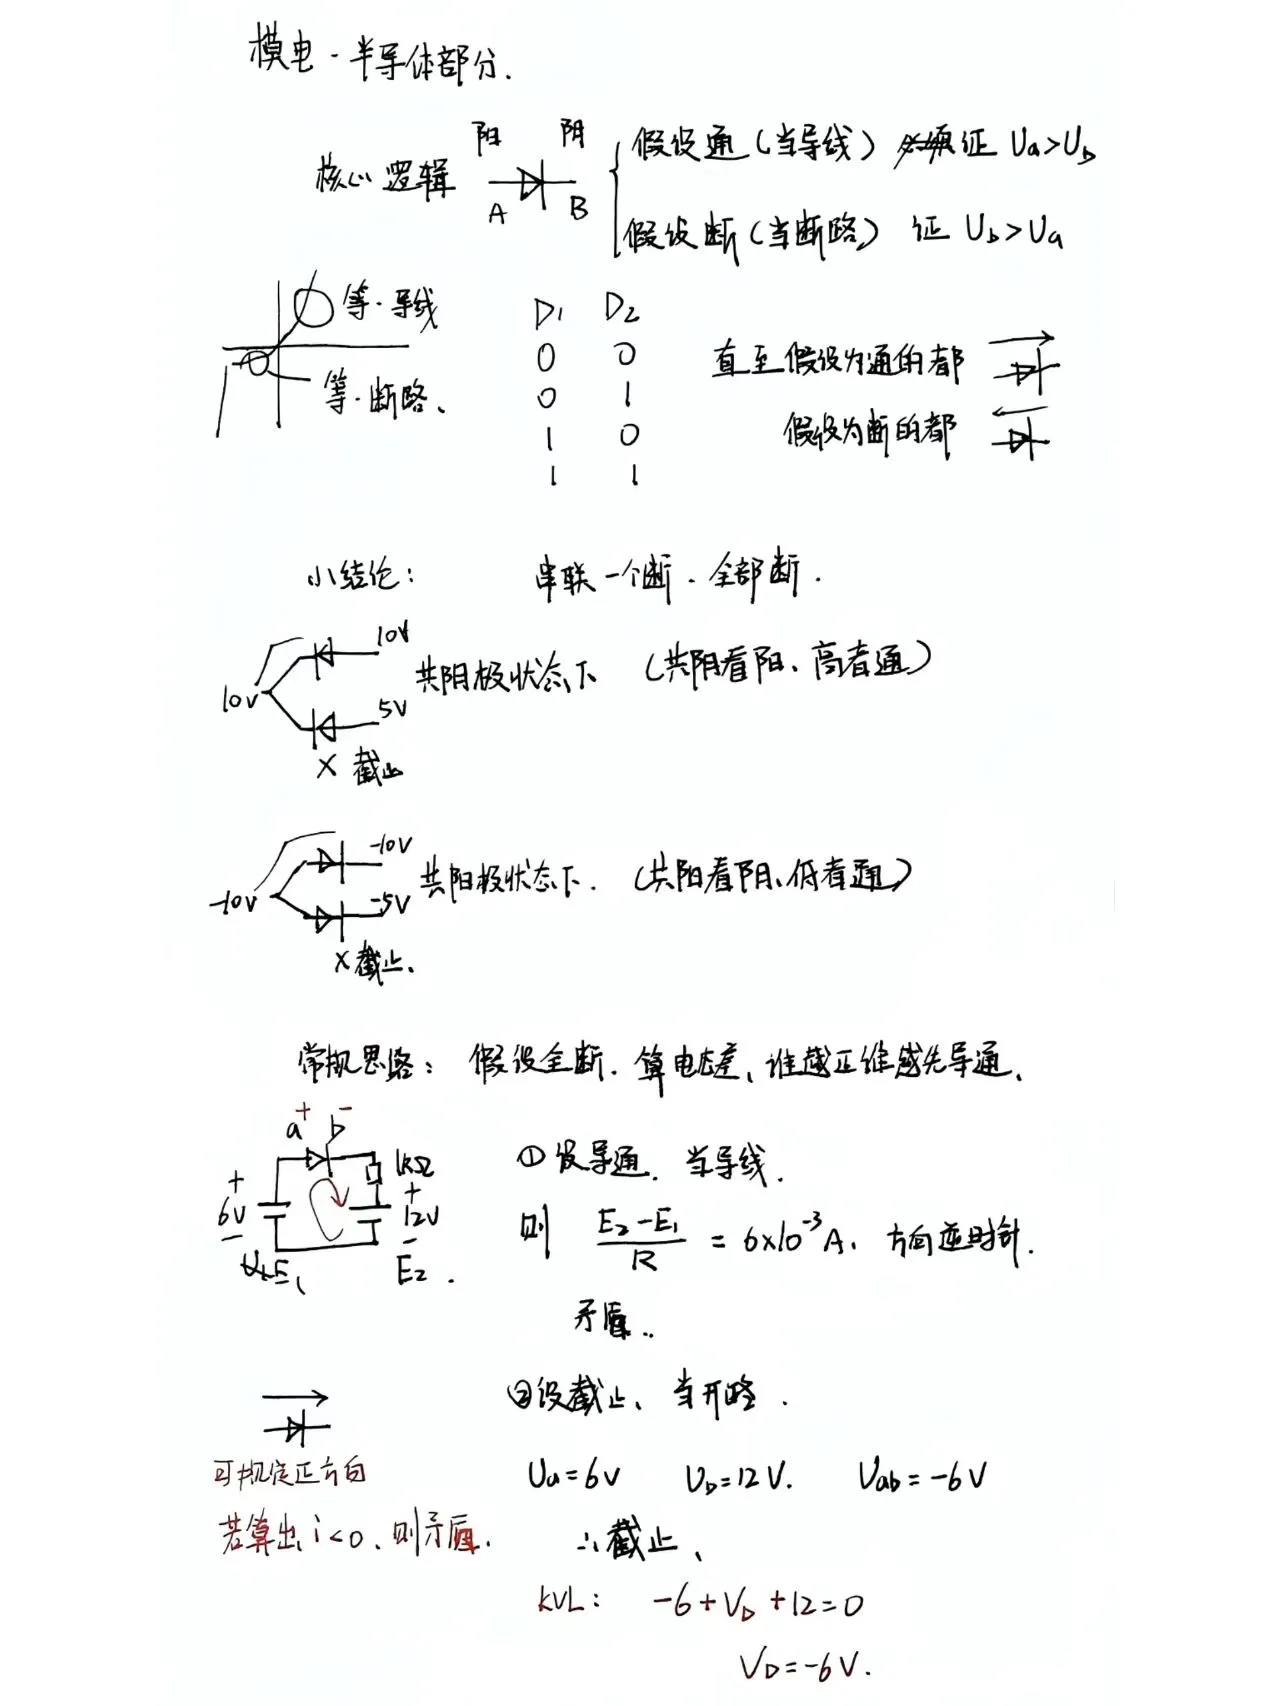 模电-半导体部分.
阳 阴
核心逻辑 A B 假设通(当导线) 须证 Ua>Ub
假设断(当断路) 证 Ub>Ua
等·导线
等·断路、
D1 D2
0 0
0 1
1 0
1 1
直至假设为通的都
假设为断的都
小结论: 串联一个断.全部断.
10V
10V 共阴极状态下 (共阴看阳、高者通)
5V
× 截止
-10V
-10V 共阳极状态下. (共阳看阴、低者通)
-5V
×截止、
常规思路: 假设全断.算电态差、谁越正谁越先导通、
a+ b-
1kΩ
+ 6V -
+ 12V -
E1
E2.
①设导通.当导线.
则 (E2-E1)/R = 6×10⁻³A、方向逆时针.
矛盾..
②设截止、当开路.
可规定正方向
若算出i<0、则矛盾.
Ua=6V Ub=12V. Uab=-6V
∴截止、
KVL: -6+VD+12=0
VD=-6V.